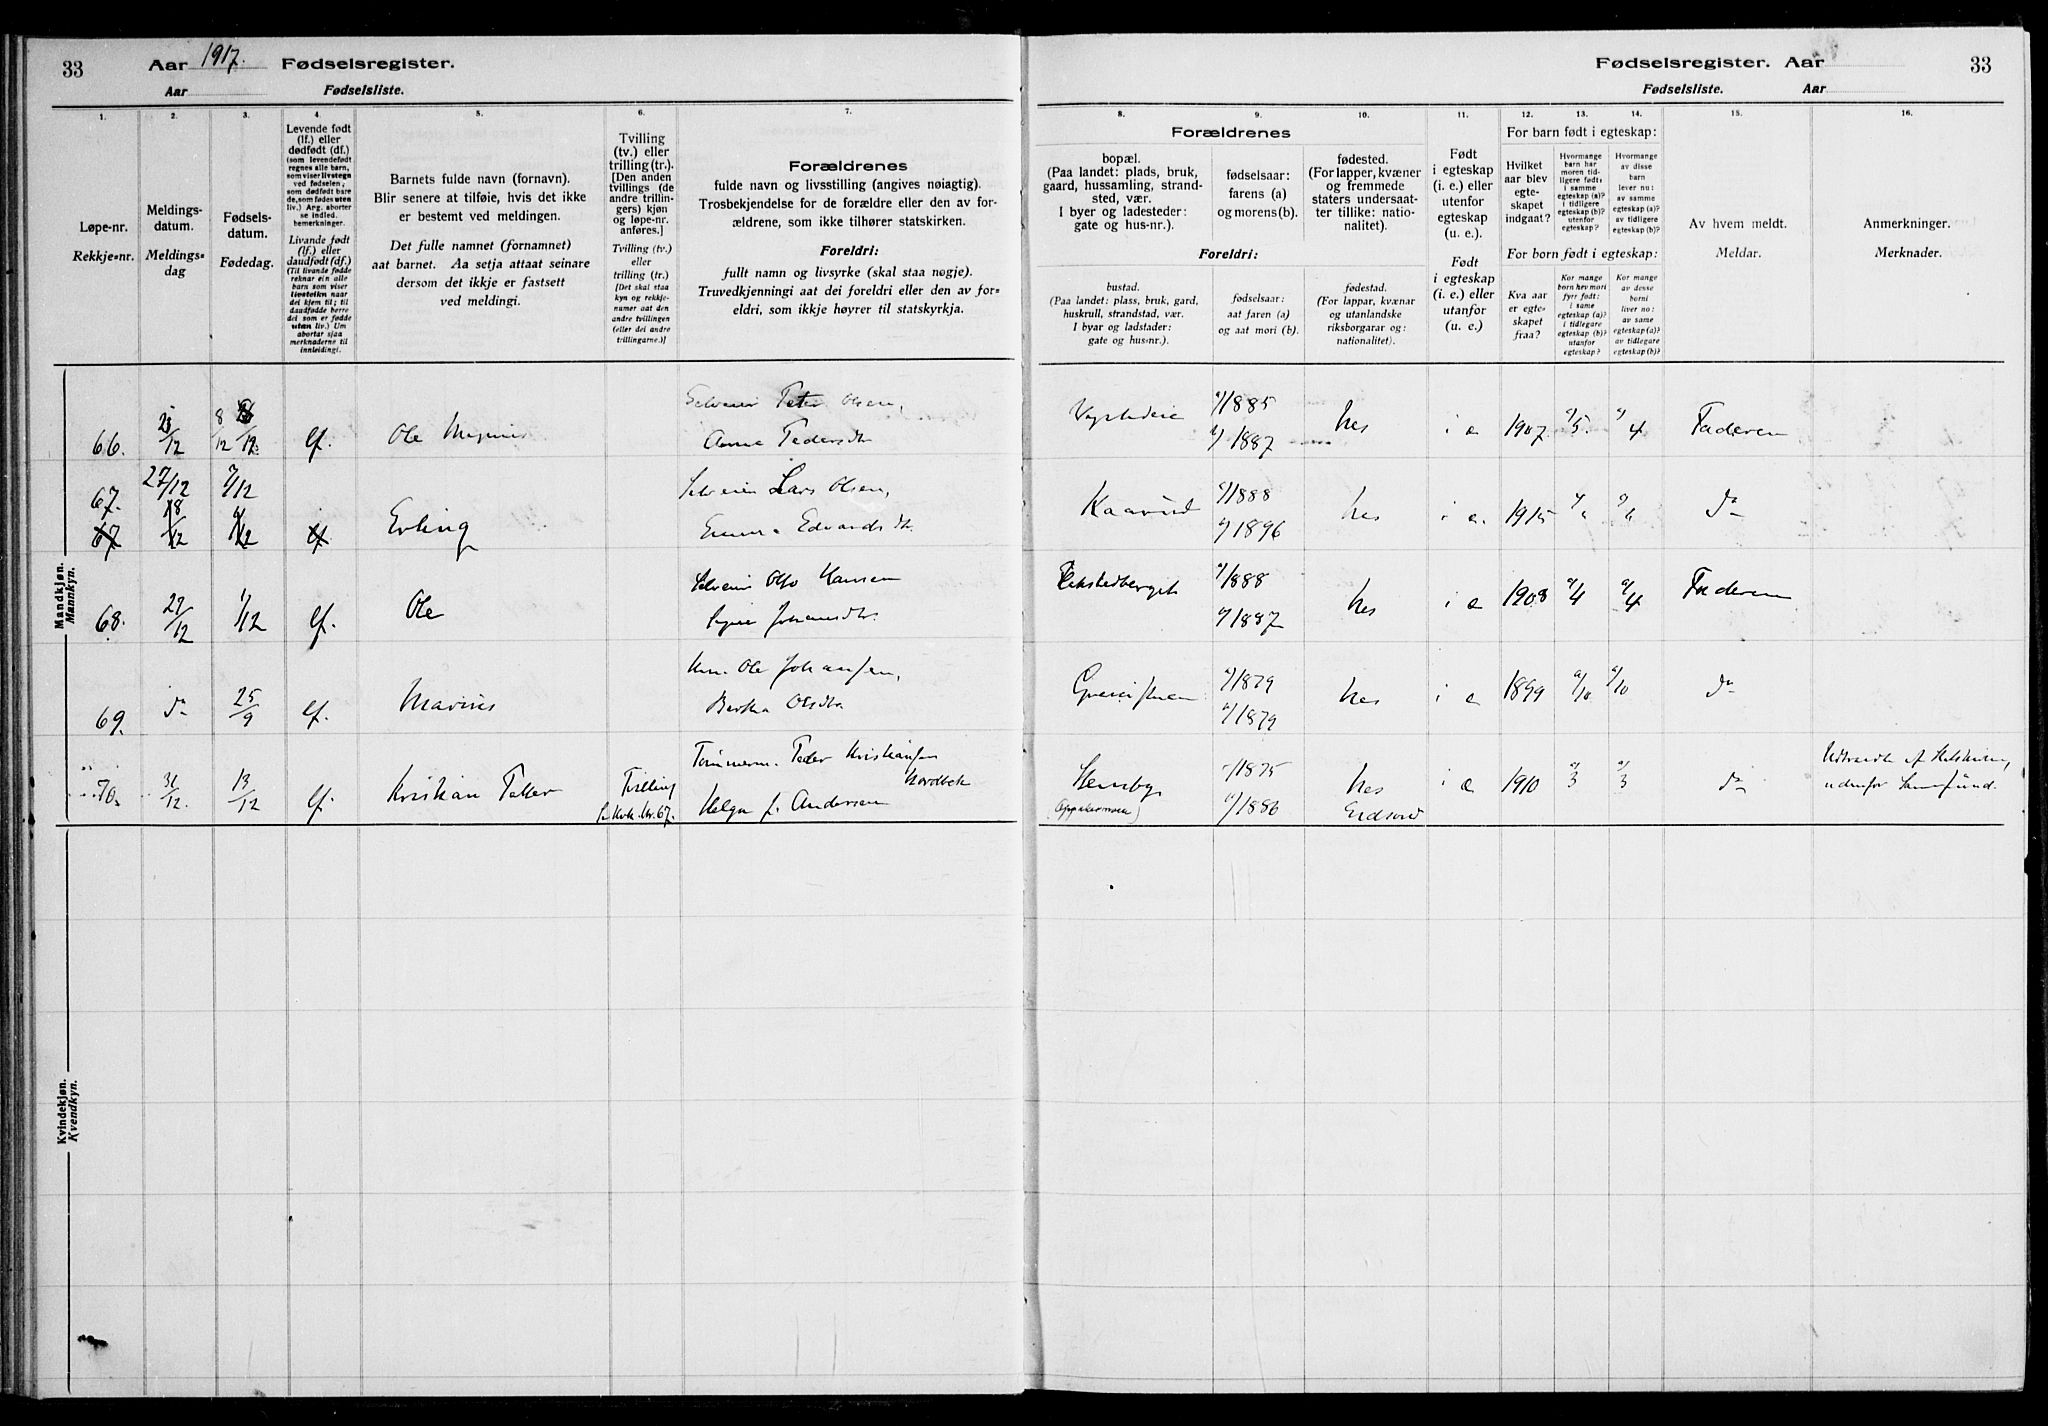 33
Aar 1917.
Fødselsregister.
Aar
Fødselsliste.
Fødselsregister. Aar
33
Fødselsliste.
Aar
1.
2.
3.
4.
5.
6.
7.
8.
9.
10.
11.
12.
13.
14.
15.
16.
Løpe-nr.
Rekkje=nr.
Meldings-
datum.
Meldings=
dag
Fødsels-
datum.
Fødedag.
Levende født
(lf.) eller
dødfødt (df.)
(som levendefødt
regnes alle barn,
som viser livstegn
ved fødselen,
som dødfødt bare
de, som fødes uten
liv.) Arg. aborter
se indled.
bemerkninger.
Livande født
(lf.) eller
daudfødt (df.)
(Til livande fødde
reknar ein alle
barn som viser
livsteikn naar
dei kjem til; til
daudfødde berre
dei som er fødde
utan liv.) Um
abortar sjaa
merknaderne til
innleidingi.
Barnets fulde navn (fornavn).
Blir senere at tilføie, hvis det ikke
er bestemt ved meldingen.
Det fulle namnet (fornamnet)
aat barnet. Aa setja attaat seinare
dersom det ikkje er fastsett
ved meldingi.
Tvilling
(tv.) eller
trilling (tr.).
[Den anden
tvillings (de
andre trillin-
gers) kjøn
og løpe-nr.
anføres.]
Tvilling (tv.)
eller
trilling (tr.)
[Det skal staa
kyn og rekkje-
numer aat den
andre tvillingen
(eller dei andre
trillingarne.)]
Forældrenes
fulde navn og livsstilling (angives nøiagtig).
Trosbekjendelse for de forældre eller den av for-
ældrene, som ikke tilhører statskirken.
Foreldri:
fullt namn og livsyrke (skal staa nøgje).
Truvedkjenningi aat dei foreldri eller den av for=
eldri, som ikkje høyrer til statskyrkja.
Forældrenes
bopæl.
(Paa landet: plads, bruk,
gaard, hussamling, strand-
sted, vær.
I byer og ladesteder:
gate og hus-nr.).
fødselsaar:
farens (a)
og morens (b).
fødested.
(For lapper, kvæner
og fremmede
staters undersaat-
ter tillike: natio-
nalitet).
Foreldri:
bustad.
(Paa landet: plass, bruk, gard,
huskrull, strandstad, vær.
I byar og ladstader:
gate og hus-nr.).
fødselsaar:
aat faren (a)
og aat mori (b).
fødestad.
(For lappar, kvænar
og utanlandske
riksborgarar og:
nationalitet).
Født
i egteskap
(i. e.) eller
utenfor
egteskap
(u. e.).
Født
i egteskap
(i. e.) eller
utanfor
(u. e.).
For barn født i egteskap:
Hvilket
aar blev
egte-
skapet
indgaat?
Hvormange
barn har
moren tid-
ligere født:
i samme
egteskap (a)?
i tidligere
egteskap (b)?
utenfor
egteskap?
Hvormange
av disse
barn
lever nu:
av samme
egteskap (a)?
av tidligere
egteskap (b)?
For born født i egteskap:
Kva aar
er egte-
skapet
fraa?
Kor mange
born hev mori
fyrr født:
i same
egteskap (a)?
i tidlegare
egteskap (b)?
utanfor
egteskap?
Kor mange
av desse
borni
liver no:
av same
egteskap (a)?
av tidlegare
egteskap (b)?
Av hvem meldt.
Meldar.
Anmerkninger.
Merknader.
Mandkjøn.
Mannkyn.
66. 12 8/12 12 lf. Ole Magnus
Selveier Peter Olsen,
Anna Pedersdtr
1885
1887
1907 5. 4 Faderen
67. 27/12 7/12
67 18/12 12 lf Erling
Selveier Lars Olsen,
Emma Edvardsdtr
Kaarud
1888
1896
i e. 1915 do
68. 27/12 1/12 lf. Ole
Selveier Otto Hansen
Signe Johansdtr.
1888
1887
i e 1908 4 4 Faderen
69. do 25/9 lf. Marius
Hm. Ole Johansen,
Berthe Olsdtr
1879
1879
i e 1899 10 10 do
70. 31/12. 13/12 lf. Kristian
Tvilling
Kvk. Nr. 67.
Tømmerm. Peder Kristiansen
Nordbek
Helga f. Andersen
Hemsby
1875
1886
Eidsvold
i e 1910 3 3 do
Udtraadt af Statskirken,
udenfor Samfund.
Kvindekjøn.
Kvendkyn.